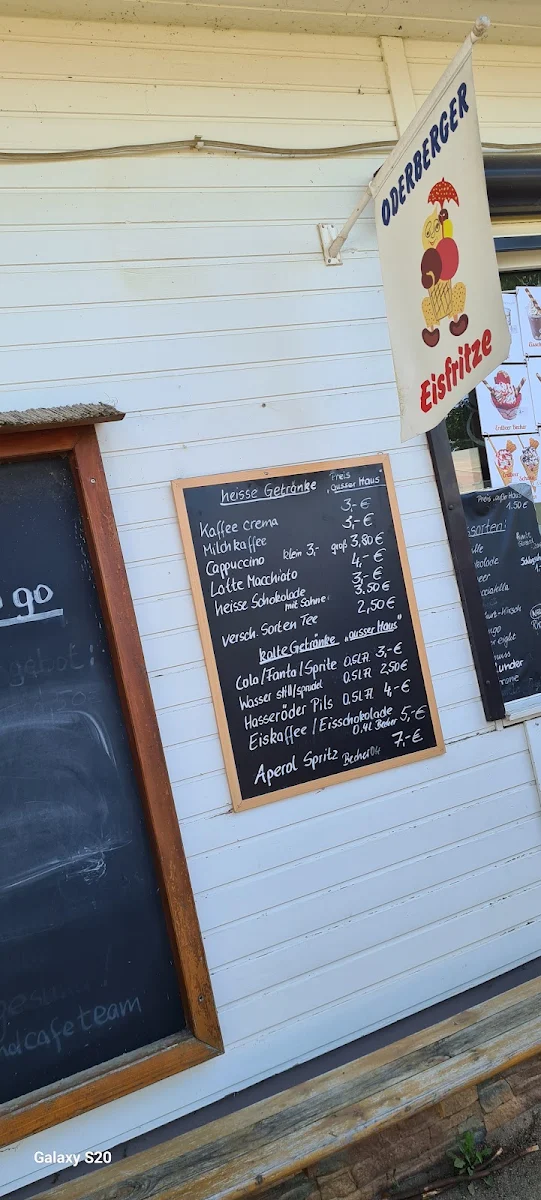 ODERBERGER
Eisfritze
heisse Getränke Preis "ausser Haus"
Kaffee Crema 3,- €
Milchkaffee 3,- €
Cappuccino klein 3,- groß 3,80 €
Latte Macchiato 4,- €
heisse Schokolade 3,- €
mit Sahne 3.50 €
versch. Sorten Tee 2,50 €
kalte Getränke "ausser Haus"
Cola/Fanta/Sprite 0,5l Fl. 3,- €
Wasser still/sprudel 0,5l Fl 2,50€
Hasseröder Pils 0,5l Fl 4,- €
Eiskaffee/Eisschokolade 5,- €
0,4l Becher
Aperol Spritz Becher 04 7,- €
go
ndcafeteam
Erdbeer Becher
Preis "außer Haus"
1.50 €
ssorten:
Galaxy S20